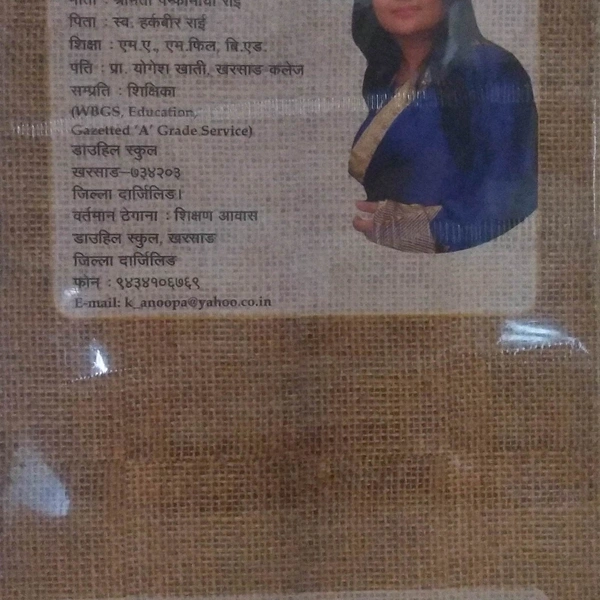 माता : श्रीमती पम्फामाया राई
पिता : स्व. हर्कबीर राई
शिक्षा : एम.ए., एम.फिल, बि.एड.
पति : प्रा. योगेश खाती, खरसाङ कलेज
सम्प्रति : शिक्षिका
(WBGS, Education,
Gazetted 'A' Grade Service)
डाउहिल स्कुल
खरसाङ–७३४२०३
जिल्ला दार्जिलिङ।
वर्तमान ठेगाना : शिक्षण आवास
डाउहिल स्कुल, खरसाङ
जिल्ला दार्जिलिङ
फोन : ९४३४१०६७६९
E-mail: k_anoopa@yahoo.co.in